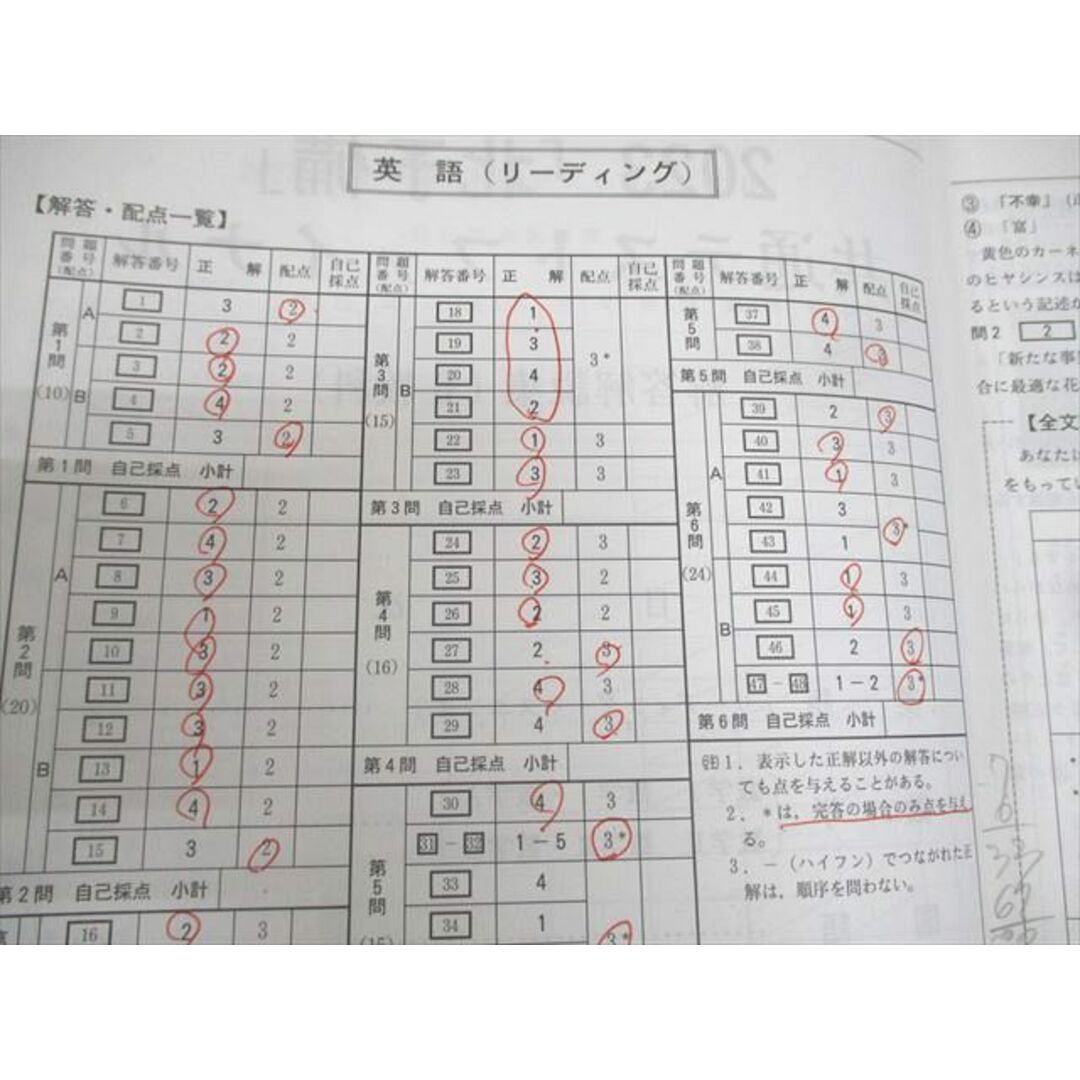 英 語(リーディング)
【解答・配点一覧】
問題番号(配点) 解答番号 正 解 配点 自己採点
第1問(10)
A
1 3 2
2 2 2
B
3 2 2
4 4 2
5 3 2
第1問 自己採点 小計
第2問(20)
A
6 2 2
7 4 2
8 3 2
9 1 2
10 3 2
B
11 3 2
12 3 2
13 1 2
14 4 2
15 3 2
第2問 自己採点 小計
16 2 3
問題番号(配点) 解答番号 正 解 配点 自己採点
第3問(15)
B
18 1
19 3
20 4
21 2
3*
22 1 3
23 3 3
第3問 自己採点 小計
第4問(16)
24 2 3
25 3 2
26 2 2
27 2 3
28 4 3
29 4 3
第4問 自己採点 小計
第5問(15)
30 4 3
31 - 32 1-5 3*
33 4
34 1
3*
問題番号(配点) 解答番号 正 解 配点 自己採点
第5問
37 4 3
38 4 3
第5問 自己採点 小計
第6問(24)
A
39 2 3
40 3 3
41 1 3
42 3
43 1
3*
B
44 1 3
45 1 3
46 2 3
47 - 48 1-2 3*
第6問 自己採点 小計
(注)1.表示した正解以外の解答につい
ても点を与えることがある。
2.*は,完答の場合のみ点を与え
る。
3.-(ハイフン)でつながれた正
解は,順序を問わない。
③ 「不幸」
④ 「富」
黄色のカーネ
のヒヤシンスは
るという記述が
問2 2
「新たな事
合に最適な花
【全文
あなたは
をもってい